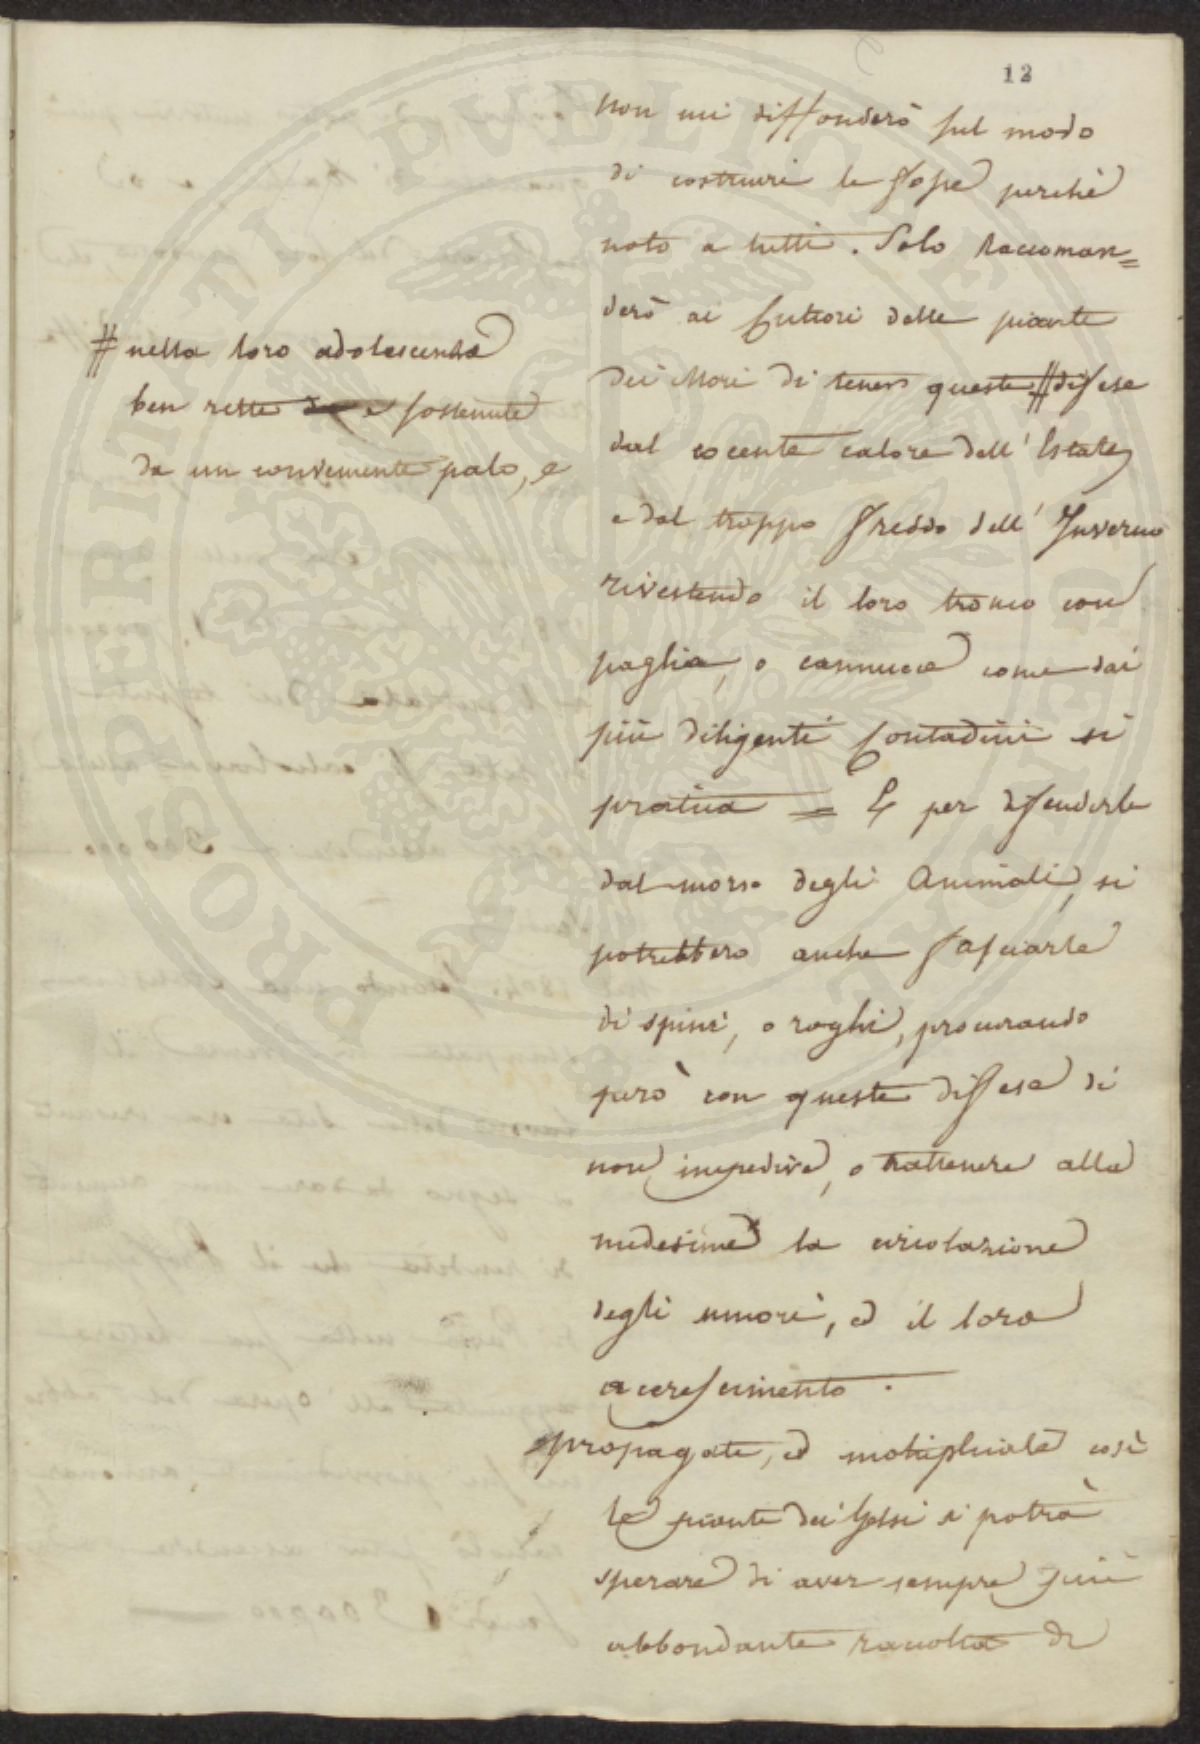 12
non mi diffonderò sul modo
di costruire le fosse perchè
noto a tutti. Solo raccoman=
derò ai Cultori delle piante
dei Mori di tener queste # difese
dal cocente calore dell' Estate,
e dal troppo freddo dell' Inverno
rivestendo il loro tronco con
paglia, o cannucce come dai
più diligenti Contadini si
pratica = E per difenderle
dal morso degli Animali, si
potrebbero anche fasciarle
di spini, o roghi, procurando
però con queste diffese di
non impedire, o trattenere alle
medesime la circolazione
degli umori, ed il loro
accrescimento.
propagate, ed moltiplicate così
le piante dei Gelsi si potrà
sperare di aver sempre più
abbondante raccolta di
# nella loro adolescenza
ben rette e sostenute
da un conveniente palo, e
PROSPERITATI PVBLICAE AVGENDAE